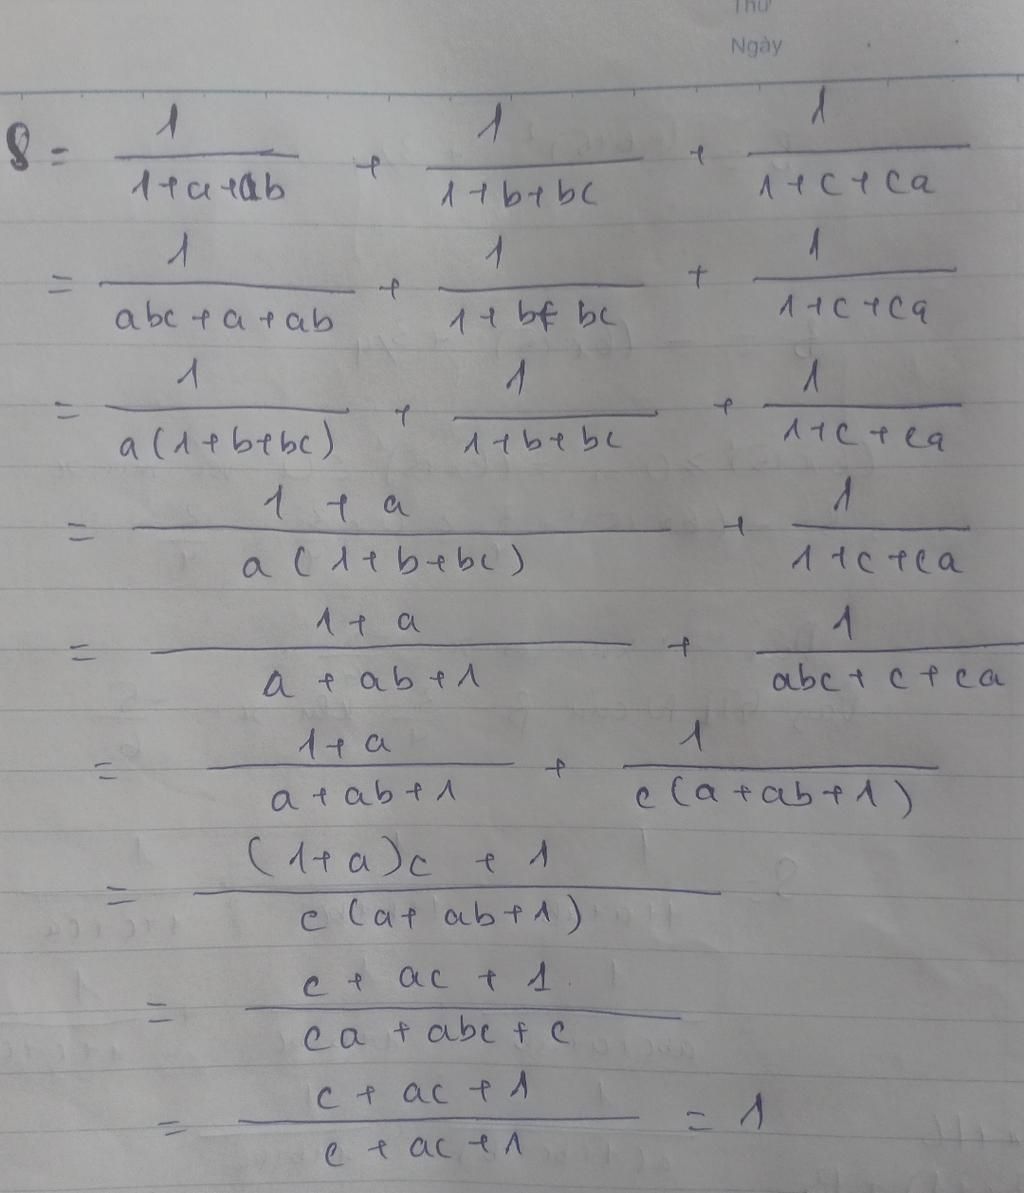 Thứ
Ngày
S = 1/(1+a+ab) + 1/(1+b+bc) + 1/(1+c+ca)
= 1/(abc+a+ab) + 1/(1+b+bc) + 1/(1+c+ca)
= 1/(a(1+b+bc)) + 1/(1+b+bc) + 1/(1+c+ca)
= (1+a)/(a(1+b+bc)) + 1/(1+c+ca)
= (1+a)/(a+ab+1) + 1/(abc+c+ca)
= (1+a)/(a+ab+1) + 1/(c(a+ab+1))
= ((1+a)c+1)/(c(a+ab+1))
= (c+ac+1)/(ca+abc+c)
= (c+ac+1)/(c+ac+1) = 1